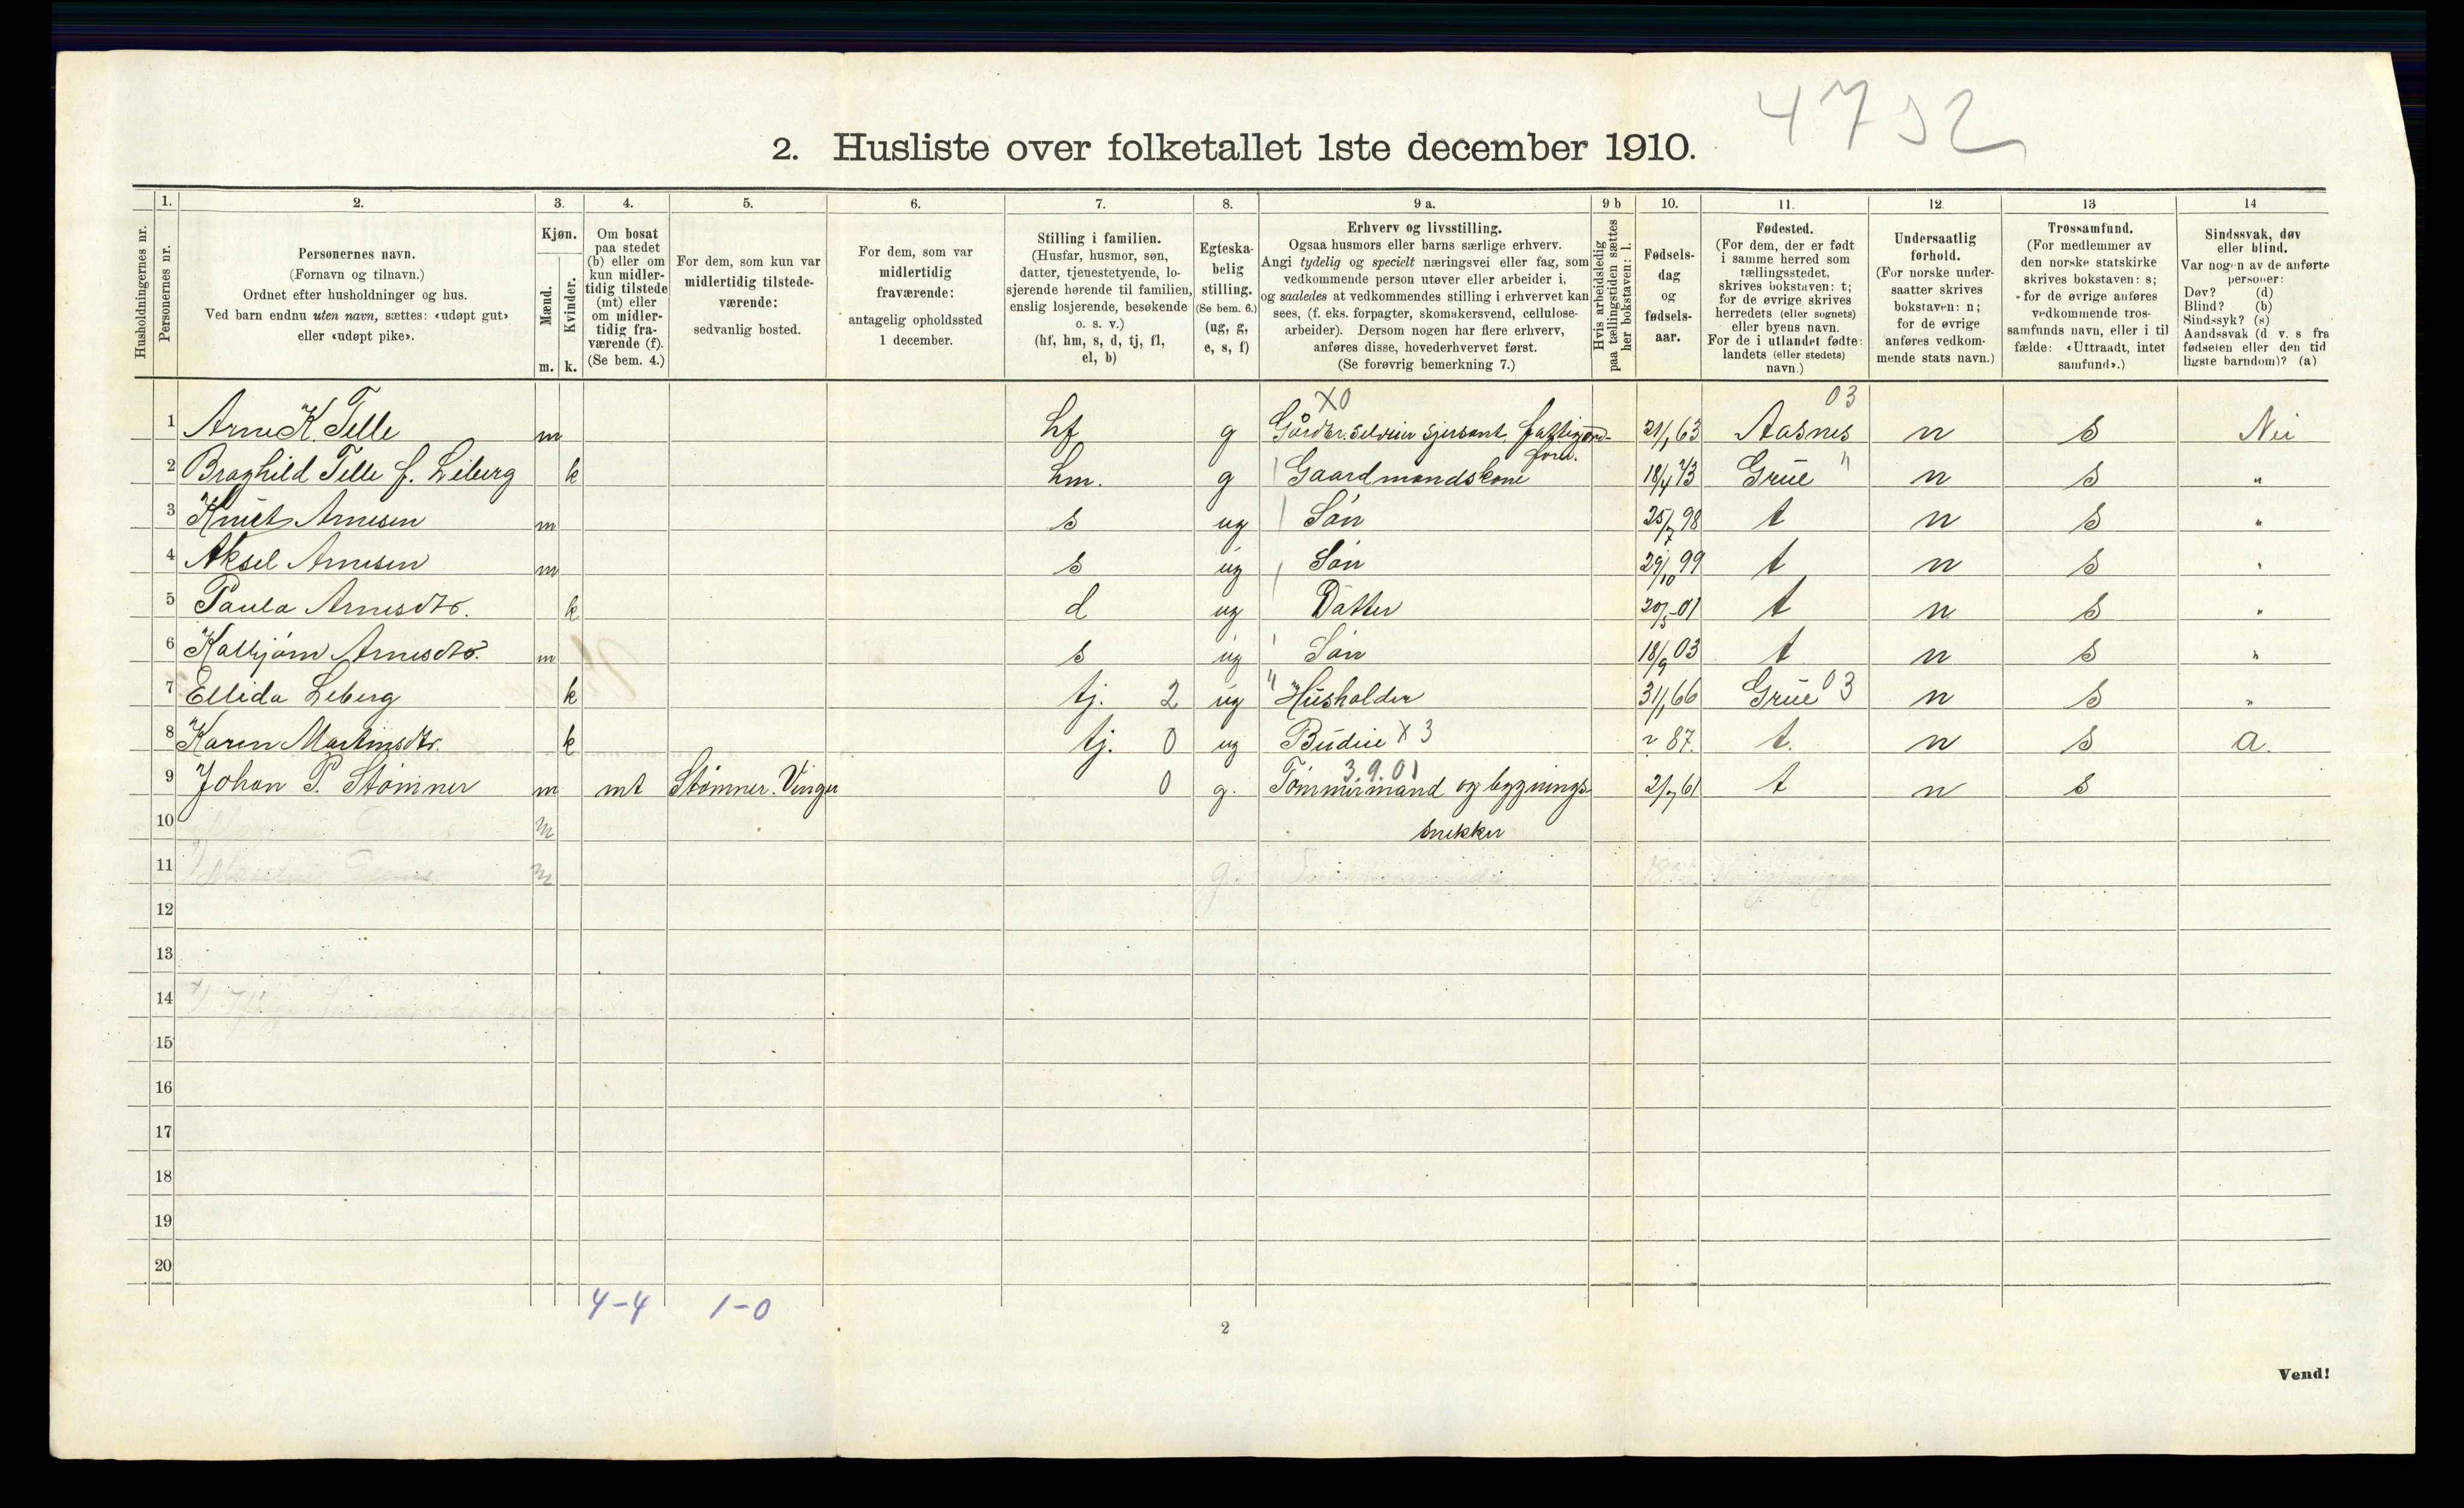 4752
2. Husliste over folketallet 1ste december 1910.
Husholdningernes nr.
1.
Personernes nr.
2.
Personernes navn.
(Fornavn og tilnavn.)
Ordnet efter husholdninger og hus.
Ved barn endnu uten navn, sættes: «udøpt gut»
eller «udøpt pike».
3.
Kjøn.
Mænd.
Kvinder.
m. k.
4.
Om bosat
paa stedet
(b) eller om
kun midler-
tidig tilstede
(mt) eller
om midler-
tidig fra-
værende (f).
(Se bem. 4.)
5.
For dem, som kun var
midlertidig tilstede-
værende:
sedvanlig bosted.
6.
For dem, som var
midlertidig
fraværende:
antagelig opholdssted
1 december.
7.
Stilling i familien.
(Husfar, husmor, søn,
datter, tjenestetyende, lo-
sjerende hørende til familien,
enslig losjerende, besøkende
o. s. v.)
(hf, hm, s, d, tj, fl,
el, b)
8.
Egteska-
belig
stilling.
(Se bem. 6.)
(ug, g,
e, s, f)
9 a.
Erhverv og livsstilling.
Ogsaa husmors eller barns særlige erhverv.
Angi tydelig og specielt næringsvei eller fag, som
vedkommende person utøver eller arbeider i,
og saaledes at vedkommendes stilling i erhvervet kan
sees, (f. eks. forpagter, skomakersvend, cellulose-
arbeider). Dersom nogen har flere erhverv,
anføres disse, hovederhvervet først.
(Se forøvrig bemerkning 7.)
9 b
Hvis arbeidsledig
paa tællingstiden sættes
her bokstaven: l.
10.
Fødsels-
dag
og
fødsels-
aar.
11.
Fødested.
(For dem, der er født
i samme herred som
tællingsstedet,
skrives bokstaven: t;
for de øvrige skrives
herredets (eller sognets)
eller byens navn.
For de i utlandet fødte:
landets (eller stedets)
navn.)
12.
Undersaatlig
forhold.
(For norske under-
saatter skrives
bokstaven: n;
for de øvrige
anføres vedkom-
mende stats navn.)
13
Trossamfund.
(For medlemmer av
den norske statskirke
skrives bokstaven: s;
for de øvrige anføres
vedkommende tros-
samfunds navn, eller i til
fælde: «Uttraadt, intet
samfund».)
14
Sindssvak, døv
eller blind.
Var nogen av de anførte
personer:
Døv? (d)
Blind? (b)
Sindssyk? (s)
Aandssvak (d v. s fra
fødselen eller den tid
ligste barndom)? (a)
X0 03
1 Arne K. Telle m hf g Gårdbr. selveier sjersant, fattig 21/1 63 Aasnes n s Nei
forst.
2 Braghild Telle f. Liberg k hm. g Gaardmandskone 18/4 73 Grue " n s "
3 Knut Arnesen m s ug Søn 25/7 98 t n s "
4 Aksel Arnesen m s ug Søn 29/10 99 t n s "
5 Paula Arnesdtr. k d ug Datter 20/5 01 t n s "
6 Kolbjørn Arnesdtr. m s ug Søn 18/9 03 t n s "
7 Ellida Leberg k tj. 2 ug " Husholder 31/1 66 Grue 03 n s "
8 Karen Martinsdtr. k tj. 0 ug Budeie X 3 87. t. n s a.
3.9.01
9 Johan P. Stømner m mt Stømner. Vinger 0 g. Tømmermand og bygnings 2/7 61 t n s
10 m snekker
11 m g.
12
13
14
15
16
17
18
19
20
4-4 1-0
2
Vend!